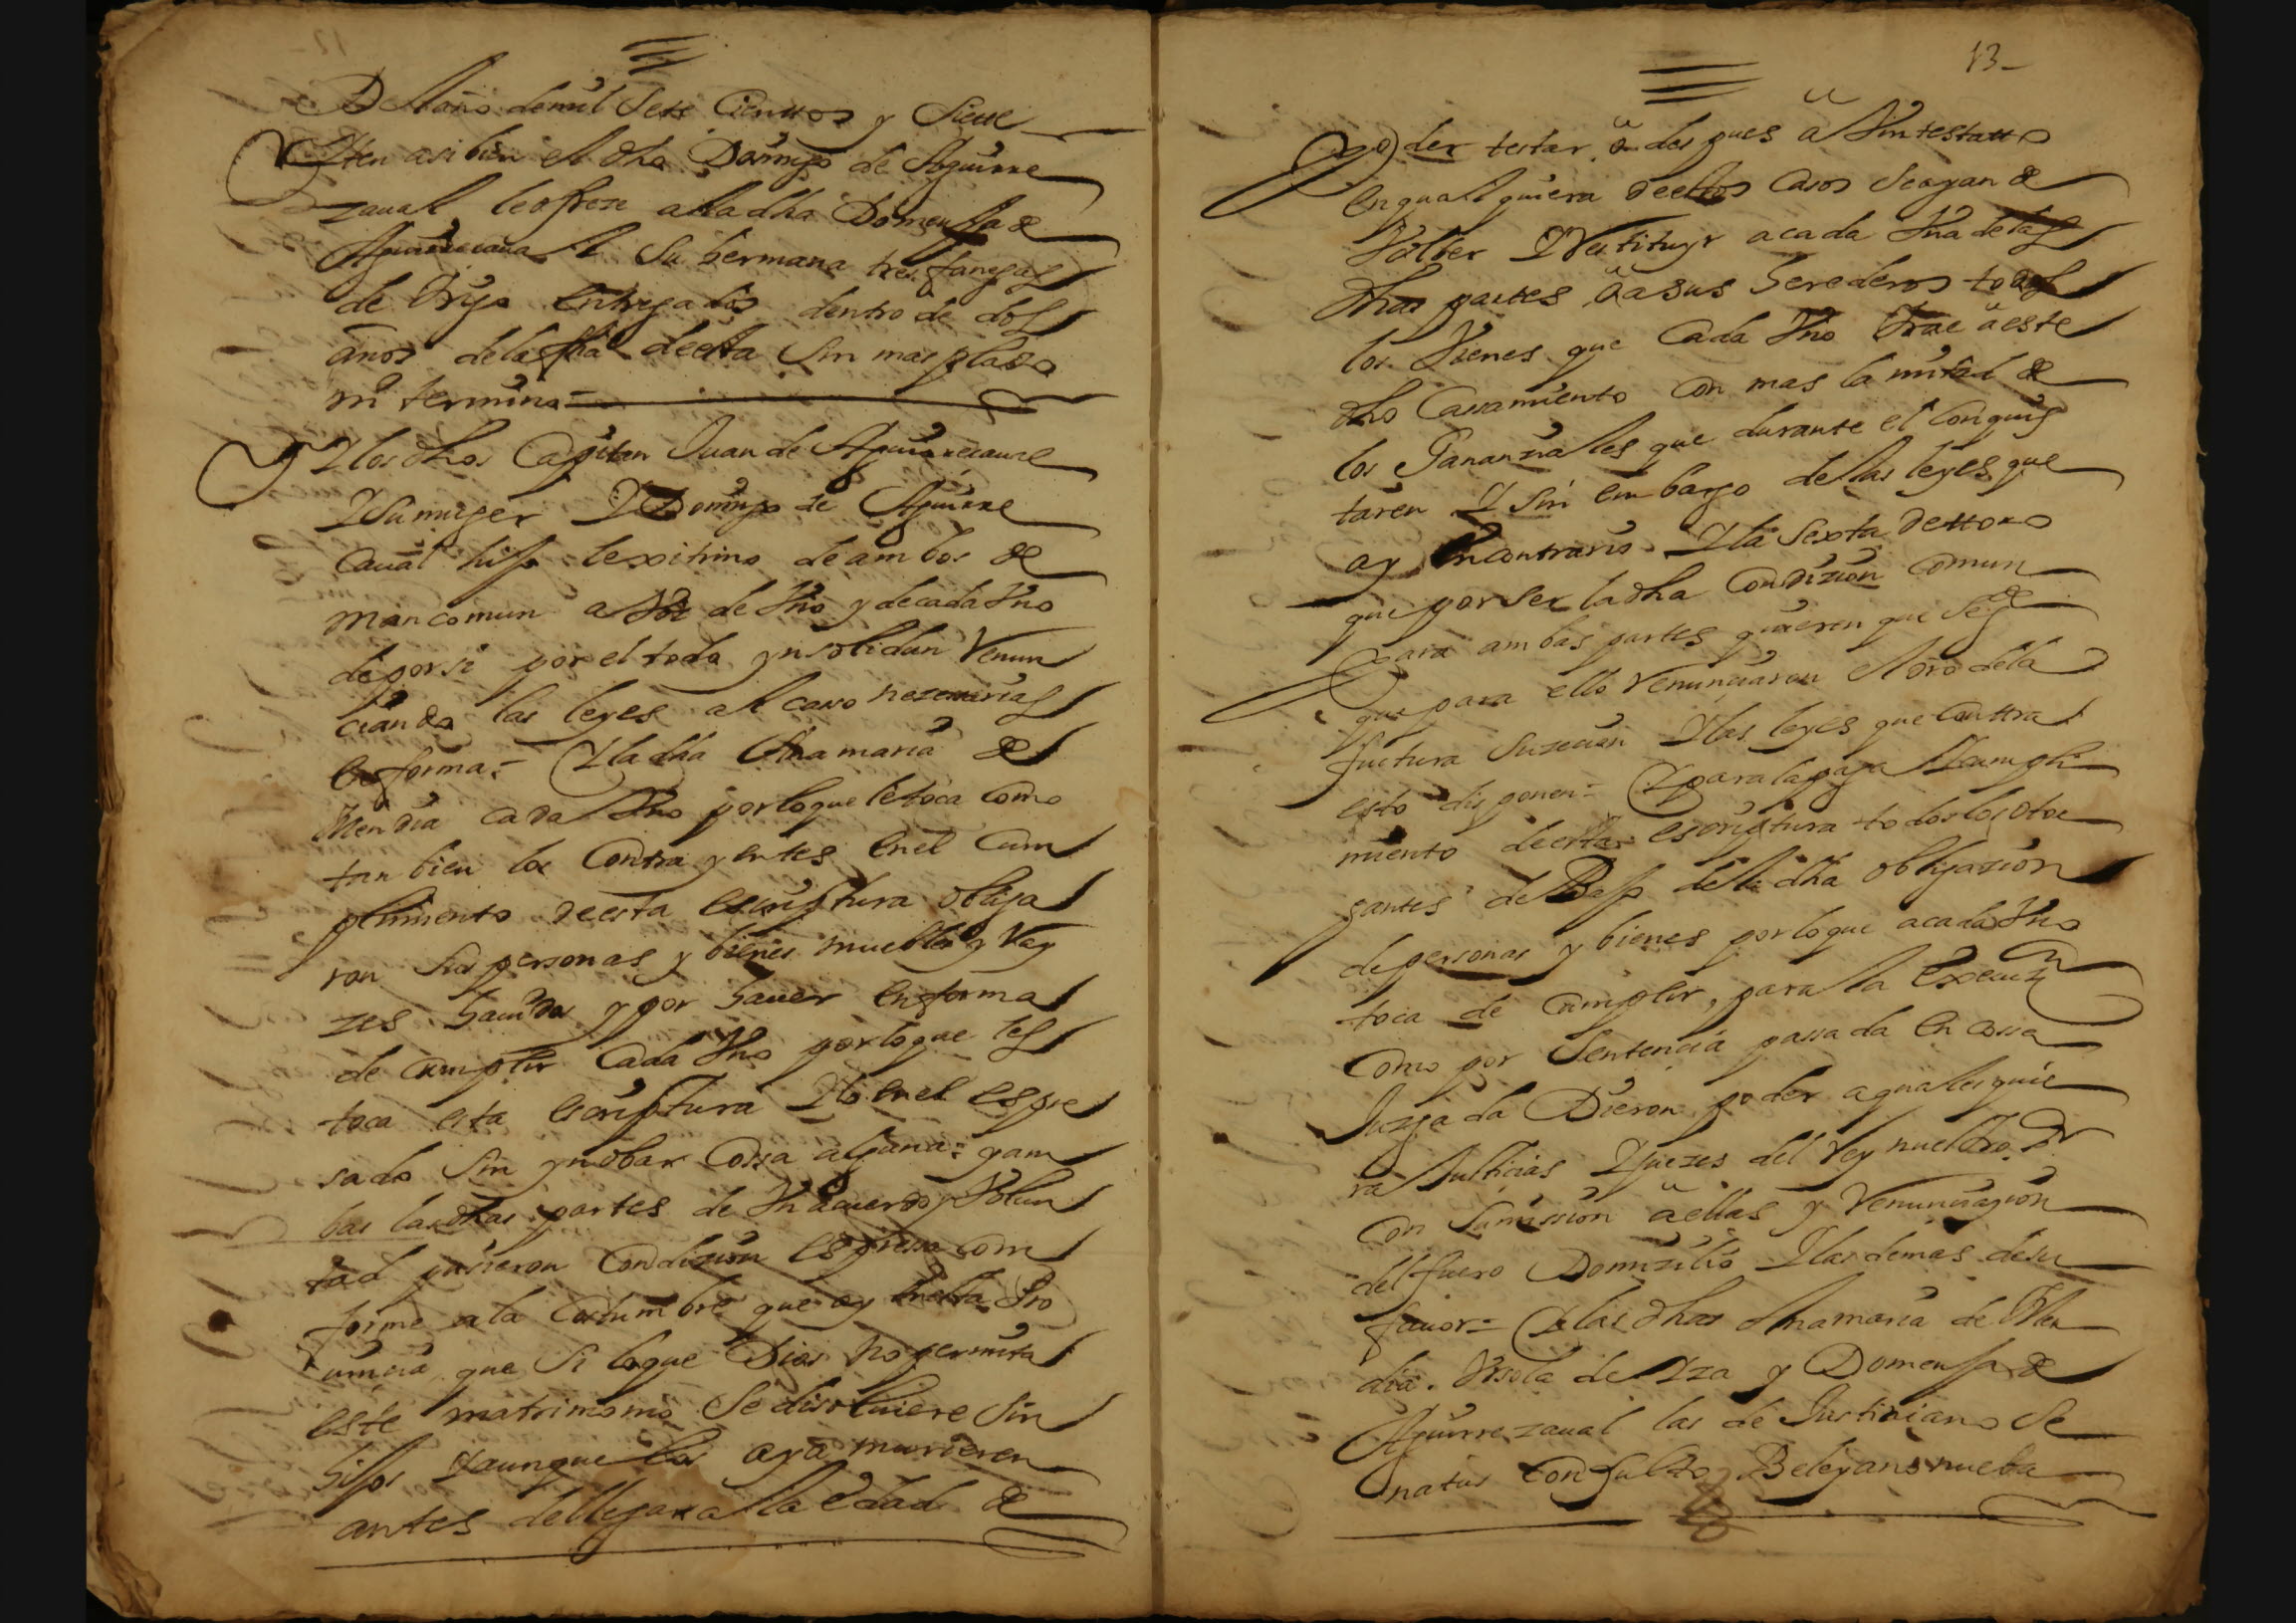 Del año de mil Sete Cienttos y Siette
Yten asi bien el dho Domingo de Aguirre
zaual le ofreze a la dha Domenssa de
Aguirrezaual Su hermana tres fanegas
de trigo entregados dentro de dos
años de la fha deesta Sin mas plazo
ni termino =
Y los dhos Capitan Juan de Aguirrezaual
Y Su muger Y Domingo de Aguirre
Caual hijo lexitimo de ambos de
mancomun a Voz de Vno y de cada Vno
de por si por el todo ynsolidun Renun
ciando las leyes al casso nezessarias
En forma = Y la dha Ana maria de
Mendia Cada Vno por lo que le toca Como
tan bien los Contrayentes En el Cum
plimiento deesta escriptura obliga
ron Sus personas y bienes muebles y Ray
zes hauidos y por hauer En forma
de Cumplir Cada Vno por lo que les
toca esta escriptura Y lo En el espre
sado Sin ynobar Cossa alguna = y am
bas las dhas partes de Vn acuerdo y Volun
tad pusieron Condizion espressa Com
forme a la Costumbre que ay En esta Pro
uincia que Si lo que Dios no permita
este matrimonio Se disoluiere Sin
hijos Y aunque los aya murieren
antes dellegar a la edad de
13-
poder testar ö despues ä Vintestatto
En qualquiera deestos Casos Se ayan de
Volber Y Restituyr a cada Vna de las
dhas partes ö a sus herederos todos
los Vienes que Cada Vno trae ä este
dho Cassamiento Con mas la mitad de
los Gananziales que durante el Conquis
taren Y Sin embargo de las leyes que
ay En contrario Y la Sexta dettoro
que por Ser la dha Condizion Comun
Para ambas partes quieren que Se gde
que para ello Renunciaron El oro de la
fuctura Suzecion Y las leyes que Conttra
esto disponen = Y para la paga Y Cumpli
miento deesta escriptura todos los otor
gantes de Baxo de la dha obligazion
de personas y bienes por lo que a cada Vno
toca de Cumplir, para la Execuzn
Como por Sentencia passada En cossa
Juzgada Dieron poder a qualesquie
ra Justicias Y Juezes del Rey nuestro Sr
Con Sumission äellas y Renunciazion
del fuero Domizilio Y las demas de su
fauor = Y las dhas Ana maria de Men
dia. Vrsola de Yza y Domenssa de
Aguirrezaual las de Justiniano Se
natus Consulto Beleyano nueba